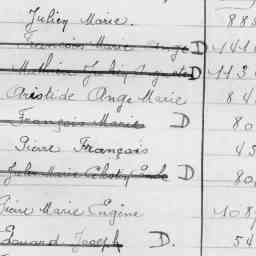 Julien Marie. 888
François Marie Ange D 1410
Mathurin D 1130
Aristide Ange Marie 84
François Marie D 80
Pierre François 45
Marie D 80
Pierre Marie Eugène 108
Edouard Joseph D. 54